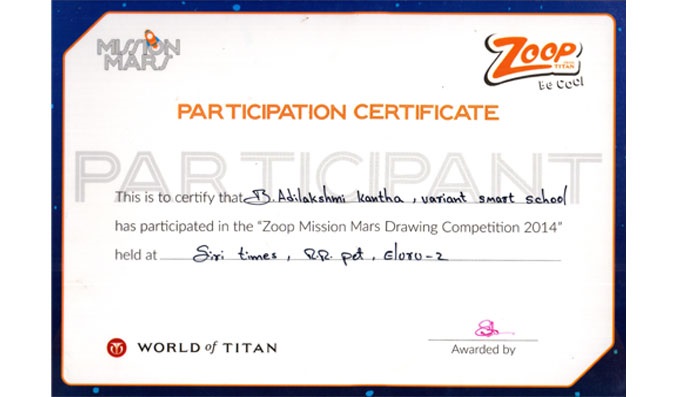 MISSION
MARS
ZOOP
TITAN
Be Cool
PARTICIPATION CERTIFICATE
PARTICIPANT
This is to certify that B. Adilakshmi kantha, variant smart school
has participated in the “Zoop Mission Mars Drawing Competition 2014”
held at Siri times, R.R. pet, Eloru-2
WORLD of TITAN
Awarded by